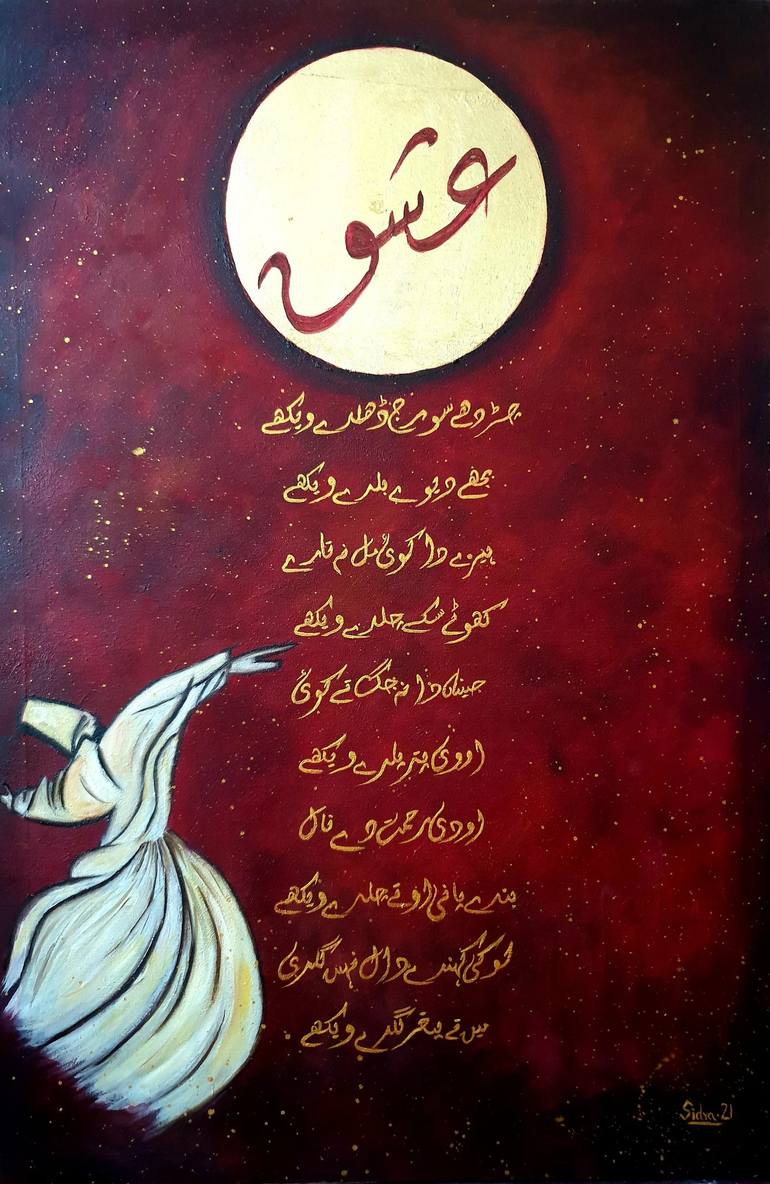 عشق
چڑدھے سورج ڈھلدے ویکھے
بجھے دیوے بلدے ویکھے
ہیرے دا کوئی مل نہ تارے
کھوٹے سکے چلدے ویکھے
جیناں دا نہ جگ تے کوئی
اووی پتر پلدے ویکھے
اودی رحمت دے نال
بندے پانی اوتے چلدے ویکھے
لوکی کہندے دال نئیں گلدی
میں تے پتھر گلدے ویکھے
Sidra.21